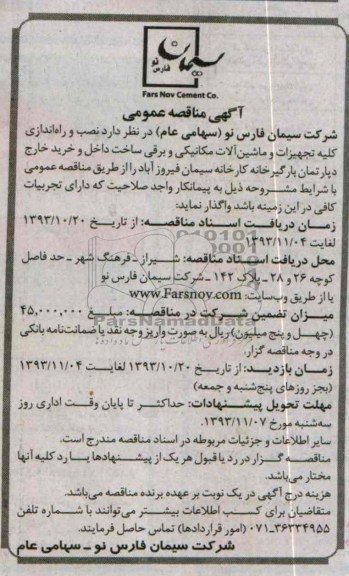 سیمان
فارس نو
Fars Nov Cement Co.
آگهی مناقصه عمومی
شرکت سیمان فارس نو (سهامی عام) در نظر دارد نصب و راه‌اندازی
کلیه تجهیزات و ماشین‌آلات مکانیکی و برقی ساخت داخل و خرید خارج
دپارتمان بارگیرخانه کارخانه سیمان فیروزآباد را از طریق مناقصه عمومی
با شرایط مشروحه ذیل به پیمانکار واجد صلاحیت که دارای تجربیات
کافی در این زمینه باشد واگذار نماید:
زمان دریافت اسناد مناقصه: از تاریخ ۱۳۹۳/۱۰/۲۰
لغایت ۱۳۹۳/۱۱/۰۴
محل دریافت اسناد مناقصه: شیراز - فرهنگ شهر - حد فاصل
کوچه ۲۶ و ۲۸ - پلاک ۱۴۲ - شرکت سیمان فارس نو
یا از طریق وب‌سایت: www.Farsnov.com
میزان تضمین شرکت در مناقصه: مبلغ ۴۵,۰۰۰,۰۰۰
(چهل و پنج میلیون) ریال به صورت واریز وجه نقد یا ضمانت‌نامه بانکی
در وجه مناقصه گزار.
زمان بازدید: از تاریخ ۱۳۹۳/۱۰/۲۰ لغایت ۱۳۹۳/۱۱/۰۴
(بجز روزهای پنج‌شنبه و جمعه)
مهلت تحویل پیشنهادات: حداکثر تا پایان وقت اداری روز
سه‌شنبه مورخ ۱۳۹۳/۱۱/۰۷.
سایر اطلاعات و جزئیات مربوطه در اسناد مناقصه مندرج است.
مناقصه گزار در رد یا قبول هر یک از پیشنهادها یا رد کلیه آنها
مختار می‌باشد.
هزینه درج آگهی در یک نوبت بر عهده برنده مناقصه می‌باشد.
متقاضیان برای کسب اطلاعات بیشتر می‌توانند با شماره تلفن
۳۶۳۳۴۹۵۵-۰۷۱ (امور قراردادها) تماس حاصل فرمایند.
شرکت سیمان فارس نو - سهامی عام
ParsNamadData